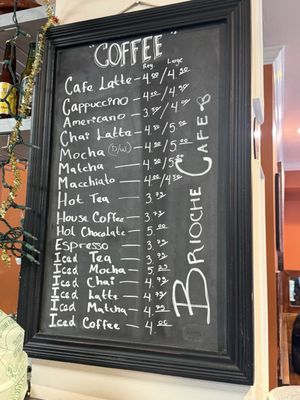 "COFFEE"
Reg Large
Cafe Latte - 4.00/4.50
Cappuccino - 4.00/4.50
Americano - 3.50/4.00
Chai Latta - 4.50/5.00
Mocha (D/W) - 4.50/5.00
Matcha - 4.50/5.00
Macchiato - 4.00/4.50
Hot Tea - 3.75
House Coffee - 3.75
Hot Chocolate - 5.00
Espresso - 3.75
Iced Tea - 3.75
Iced Mocha - 5.25
Iced Chai - 4.75
Iced Latte - 4.75
Iced Matcha - 4.75
Iced Coffee - 4.00
BRIOCHE CAFE